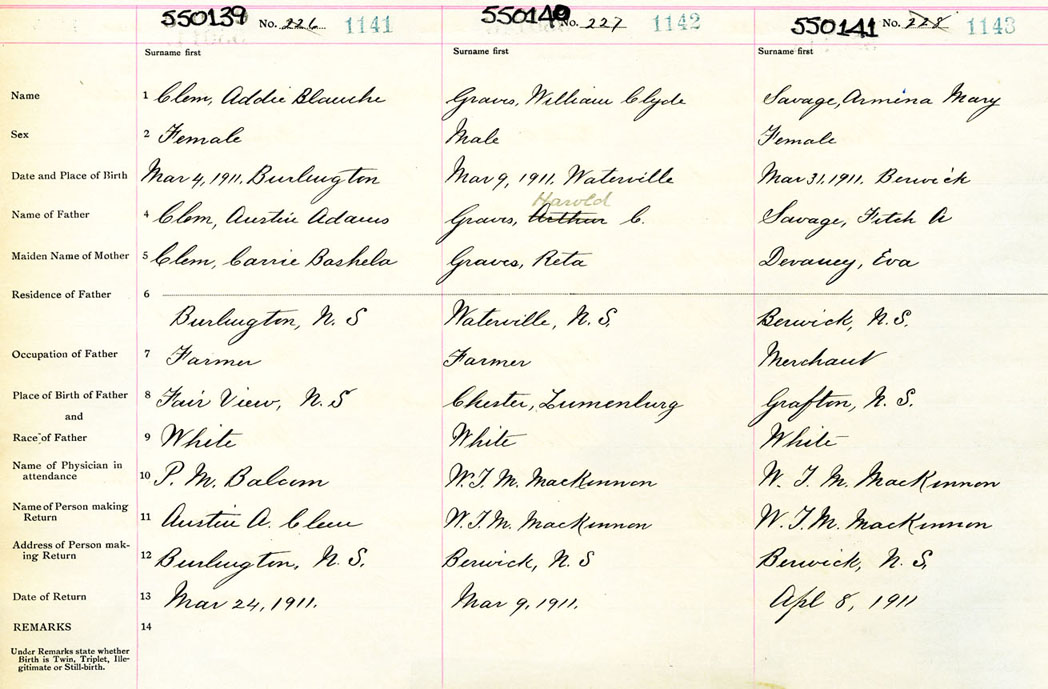 550139 No. 226 1141 550140 No. 227 1142 550141 No. 228 1143
Surname first Surname first Surname first
Name 1 Clem, Addie Blanche Graves, William Clyde Savage, Armena Mary
Sex 2 Female Male Female
Date and Place of Birth Mar 4, 1911, Burlington Mar 9, 1911. Waterville Mar 31, 1911. Berwick
Harold
Name of Father 4 Clem, Austin Adams Graves, Arthur C. Savage, Fitch A
Maiden Name of Mother 5 Clem, Carrie Bashela Graves, Reta Devaney, Eva
Residence of Father 6
Burlington, N. S Waterville, N.S. Berwick, N.S.
Occupation of Father 7 Farmer Farmer Merchant
Place of Birth of Father 8 Fair View, N. S Chester, Lumenburg Grafton, N. S.
and
Race of Father 9 White White White
Name of Physician in
attendance 10 P. M. Balcom W.T.M. MacKinnon W. T. M. MacKinnon
Name of Person making
Return 11 Austin A. Clem W.T.M. MacKinnon W.T.M. MacKinnon
Address of Person mak-
ing Return 12 Burlington, N. S. Berwick, N. S Berwick, N. S.
Date of Return 13 Mar 24, 1911. Mar 9, 1911. Apl 8, 1911
REMARKS 14
Under Remarks state whether
Birth is Twin, Triplet, Ille-
gitimate or Still-birth.